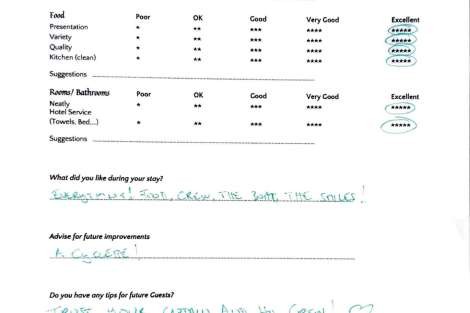 Food Poor OK Good Very Good Excellent
Presentation * ** *** **** *****
Variety * ** *** **** *****
Quality * ** *** **** *****
Kitchen (clean) * ** *** **** *****
Suggestions
Rooms/ Bathrooms Poor OK Good Very Good Excellent
Neatly * ** *** **** *****
Hotel Service
(Towels, Bed,...) * ** *** **** *****
Suggestions
What did you like during your stay?
EVERYTHING! FOOD, CREW, THE BOAT, THE SMILES!
Advise for future improvements
A
Do you have any tips for future Guests?
TRUST YOUR CAPTAIN AND HIS CREW! ♡